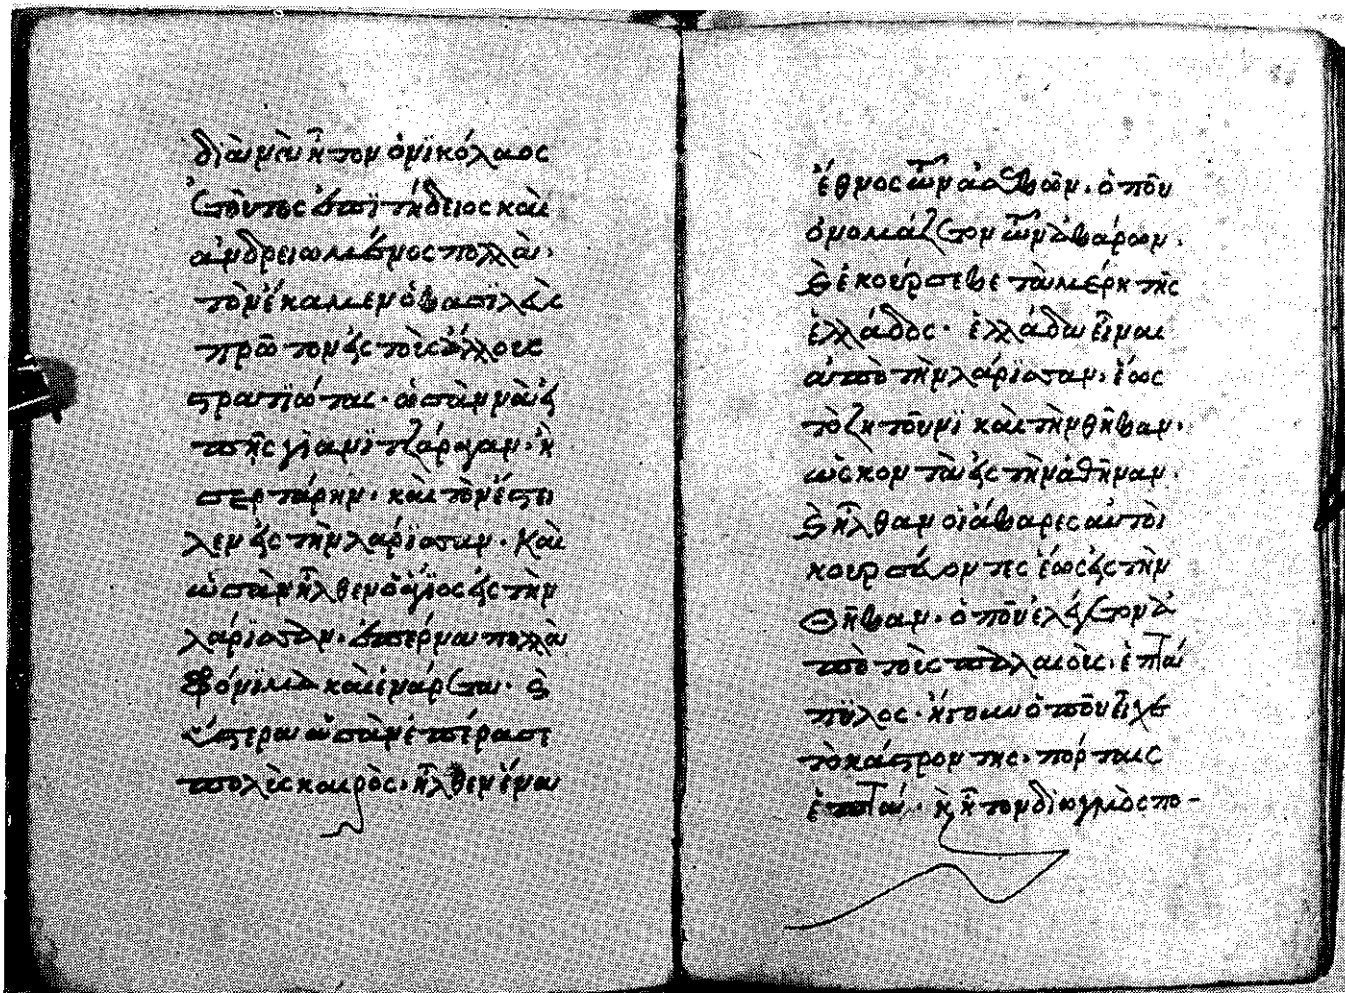 διὰ νὰ ἦτον ὁ νϊκόλαος
ἐτοῦτος ἐπϊτήδειος καὶ
ἀνδρειωμένος πολλὰ·
τὸν ἔκαμεν ὁ βασϊλεὺς
πρῶτον εἰς τοὺς ἄλλους
στρατϊώταις· ὡσὰν νὰ εἰ
πῇς γϊανϊτζάραγαν· ἢ
σερτάρην· καὶ τὸν ἔστει
λεν εἰς τὴν λάρϊσσαν. Καὶ
ὡσὰν ἦλθεν ὁ ἅγϊος εἰς τὴν
λάρϊσσαν, ἐπερνα πολλὰ
φρόνϊμα καὶ ἐνάρετα· ϗ
ὕστερα ὡσὰν ἐπέρασε
πολὺς καιρὸς, ἦλθεν ἕνα
ἔθνος τῶν ἀράβων, ὁποῦ
ὀνομάζετον τῶν ἀβάρων·
ϗ ἐκούρσεβε τὰ μέρη τῆς
ἑλλάδος· ἑλλάδα εἶναι
ἀπὸ τὴν λάρϊσσαν, ἕως
τὸ ζητοῦνϊ καὶ τὴν θῆβαν,
ὡς κοντὰ εἰς τὴν ἀθῆναν.
ϗ ἦλθαν οἱ ἄβαρες αὐτοὶ
κουρσεύοντες ἕως εἰς τὴν
Θῆβαν, ὁποῦ ἐλέγετον ἀ
πὸ τοὺς παλαιοὺς, ἑπτά
πϋλος· ἤγουν ὁποῦ εἶχε
τὸ κάστρον της, πόρταις
ἑπτά· ϗ ἦτον διωγμὸς πο-